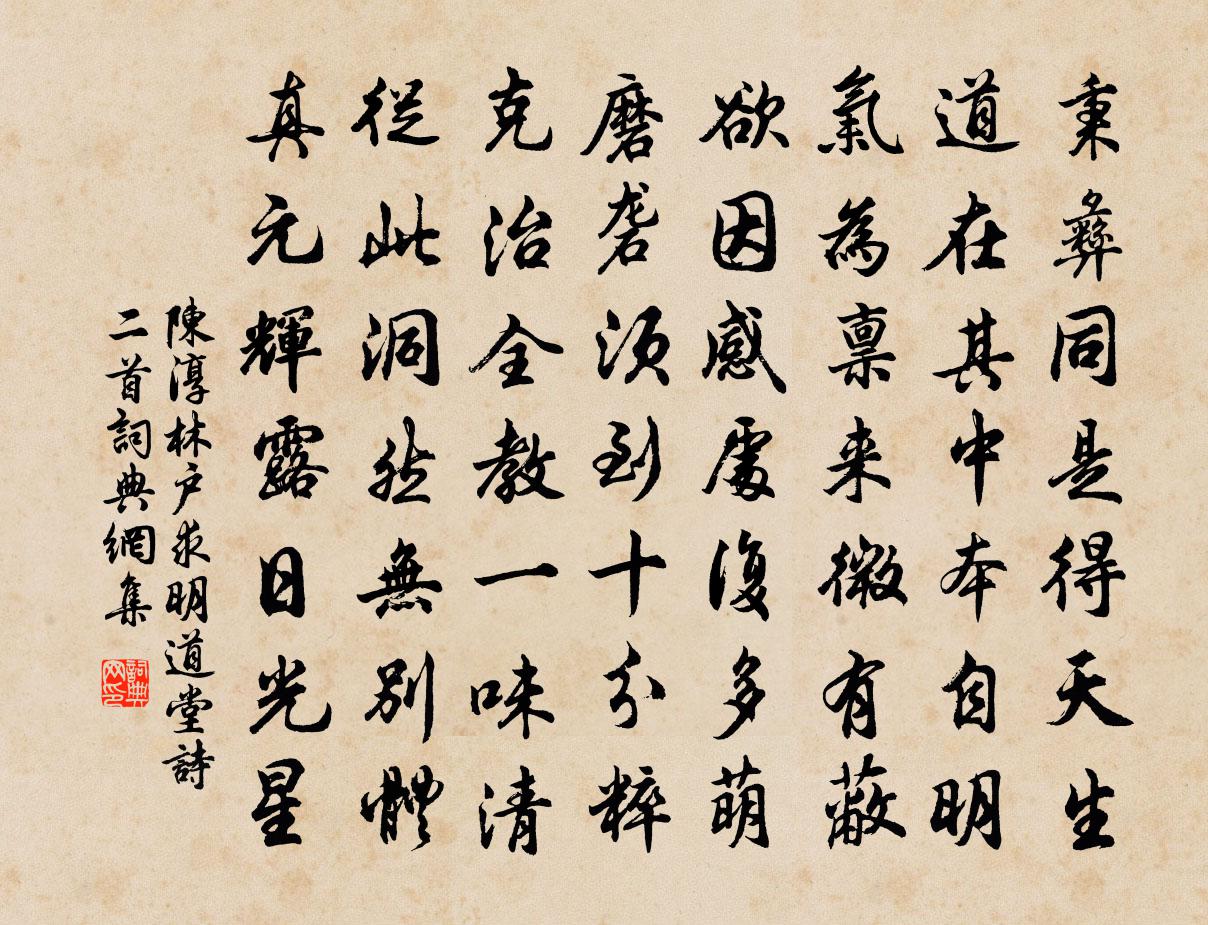 秉彝同是得天生
道在其中本自明
氣為禀来微有蔽
欲因感處復多萌
磨砻須到十分粹
克治全教一味清
從此洞然無別體
真元輝露日光星
陳淳林户求明道堂詩
二首詞典網集
詞典
网印